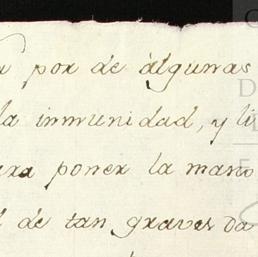 por de algunas
la inmunidad, y li
ara poner la mano
l de tan graves da